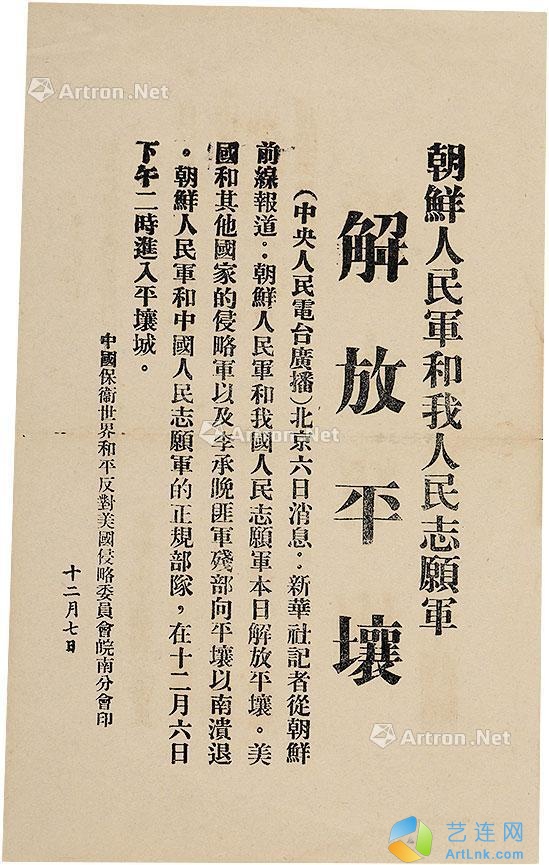 朝鮮人民軍和我人民志願軍
解放平壤
(中央人民電台廣播)北京六日消息：新華社記者從朝鮮
前線報道：朝鮮人民軍和我國人民志願軍本日解放平壤。美
國和其他國家的侵略軍以及李承晚匪軍殘部向平壤以南潰退
。朝鮮人民軍和中國人民志願軍的正規部隊，在十二月六日
下午二時進入平壤城。
中國保衛世界和平反對美國侵略委員會皖南分會印
十二月七日
Artron.Net
Artron.Net
Artron.Net
艺连网
ArtLnk.com